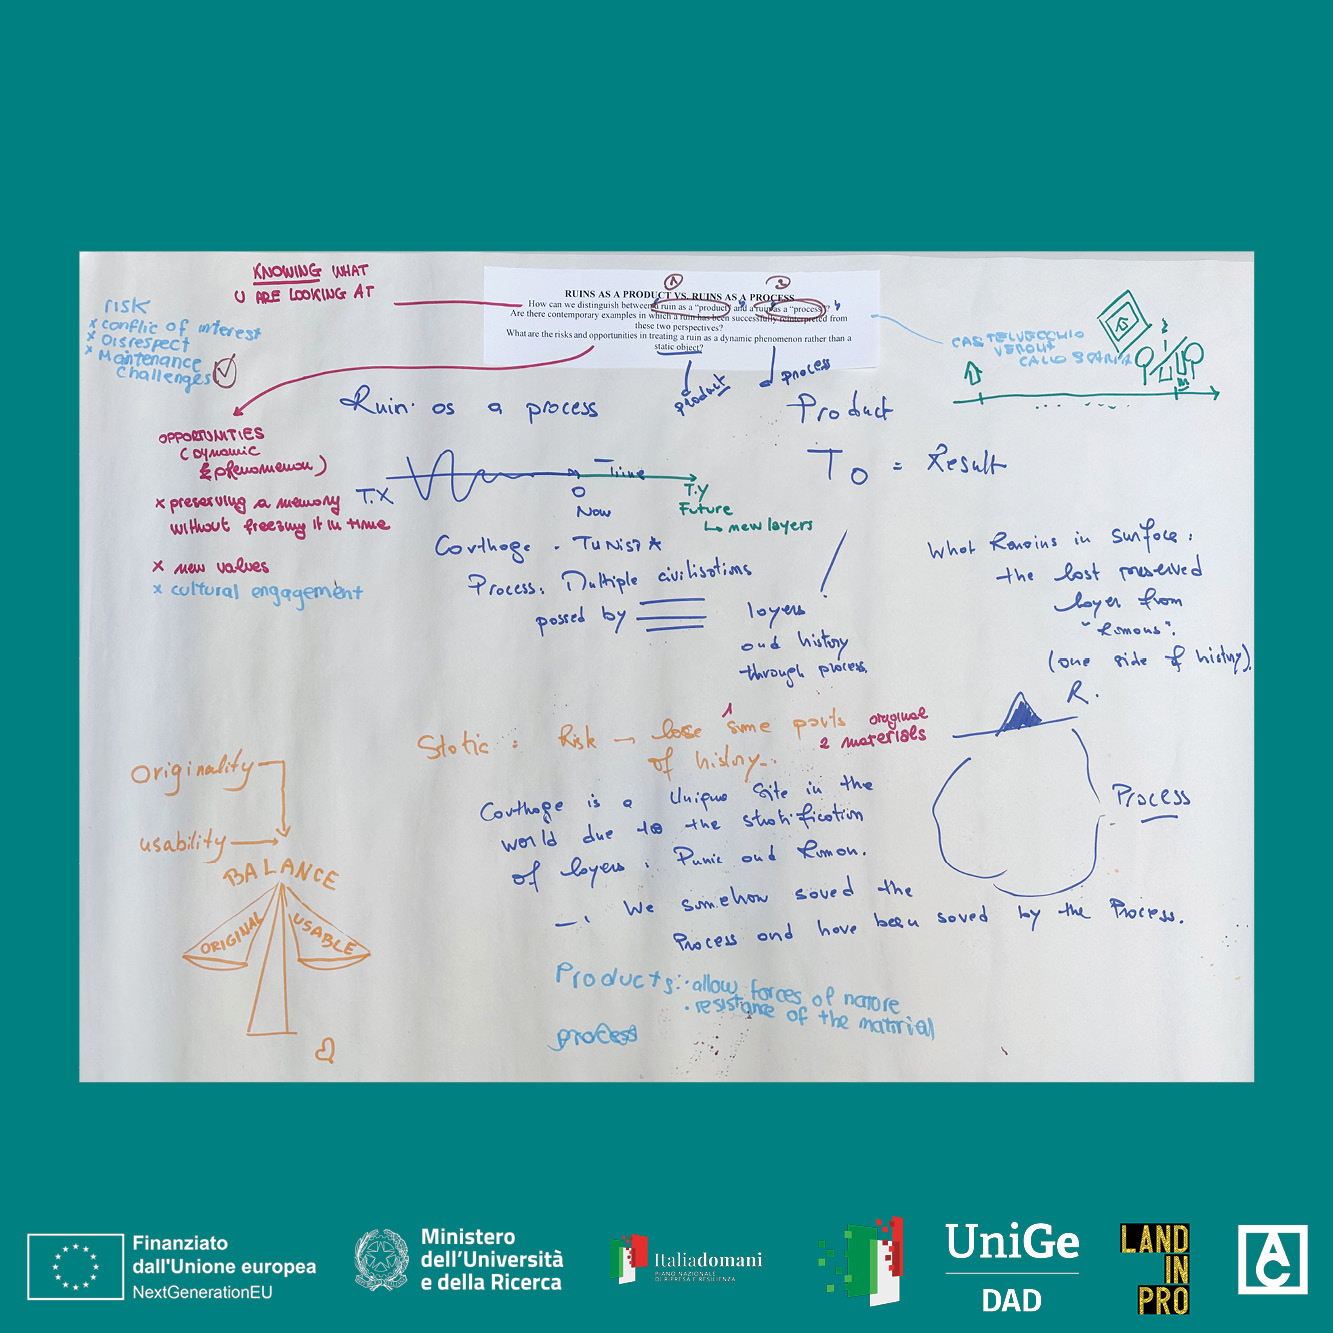 KNOWING WHAT
U ARE LOOKING AT
risk
x conflic of interest
x Disrespect
x Maintenance
challenges
1
2
RUINS AS A PRODUCT VS. RUINS AS A PROCESS
How can we distinguish between a ruin as a "product" and a ruin as a "process"?
Are there contemporary examples in which a ruin has been successfully reinterpreted from
these two perspectives?
What are the risks and opportunities in treating a ruin as a dynamic phenomenon rather than a
static object?
product
process
CASTELVECCHIO
VERONA
OPPORTUNITIES
(dynamic
phenomenon)
x preserving a memory
without freezing it in time
x new values
x cultural engagement
Ruin as a process
T.X
Time
O
Now
T.Y
Future
↳ new layers
Product
To = Result
Carthage - TUNISIA
Process: Multiple civilisations
passed by
layers
and history
through process.
What Remains in surface:
the last preserved
layer from
"Romans".
(one side of history).
R.
Process
Static: Risk → lose some parts
of history...
1 original
2 materials
Carthage is a Unique Site in the
world due to the stratification
of layers: Punic and Roman.
We somehow saved the
Process and have been saved by the Process.
Products: · allow forces of nature
· resistance of the material
process
Originality
usability
BALANCE
ORIGINAL
USABLE
Finanziato
dall'Unione europea
NextGenerationEU
Ministero
dell'Università
e della Ricerca
Italiadomani
PIANO NAZIONALE
DI RIPRESA E RESILIENZA
UniGe
DAD
LAND
IN
PRO
AC